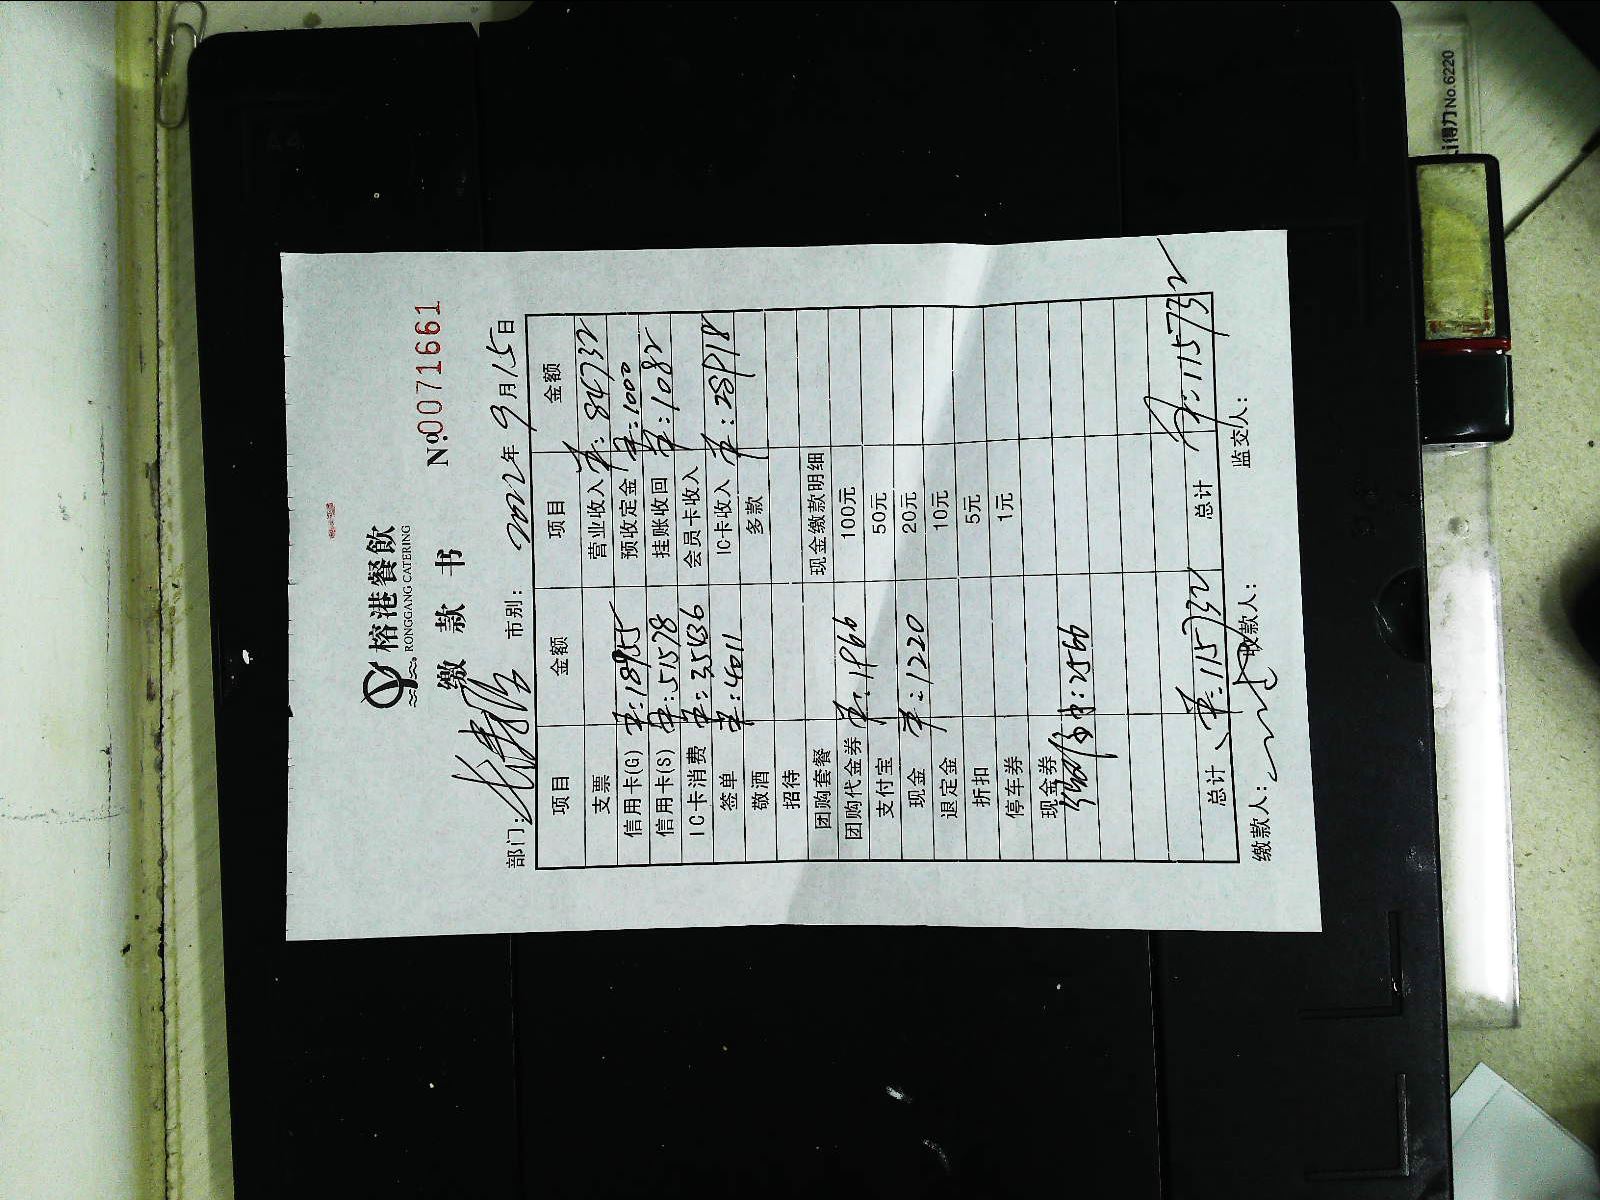 榕港餐飲
RONGGANG CATERING
缴 款 书
№0071661
部门: 市别: 2022年 9月15日
项目 金额 项目 金额
支票 营业收入 ¥:84732
信用卡(G) ¥:18955 预收定金 ¥:1000
信用卡(S) ¥:51578 挂账收回 ¥:1082
IC卡消费 ¥:35436 会员卡收入
签单 ¥:4011 IC卡收入 ¥:28918
敬酒 多款
招待
团购套餐 现金缴款明细
团购代金券 ¥:1966 100元
支付宝 50元
现金 ¥:1220 20元
退定金 10元
折扣 5元
停车券 1元
现金券
¥:2566
总计 ¥:115732 总计 ¥:115732
缴款人: 收款人: 监交人:
得力 No.6220